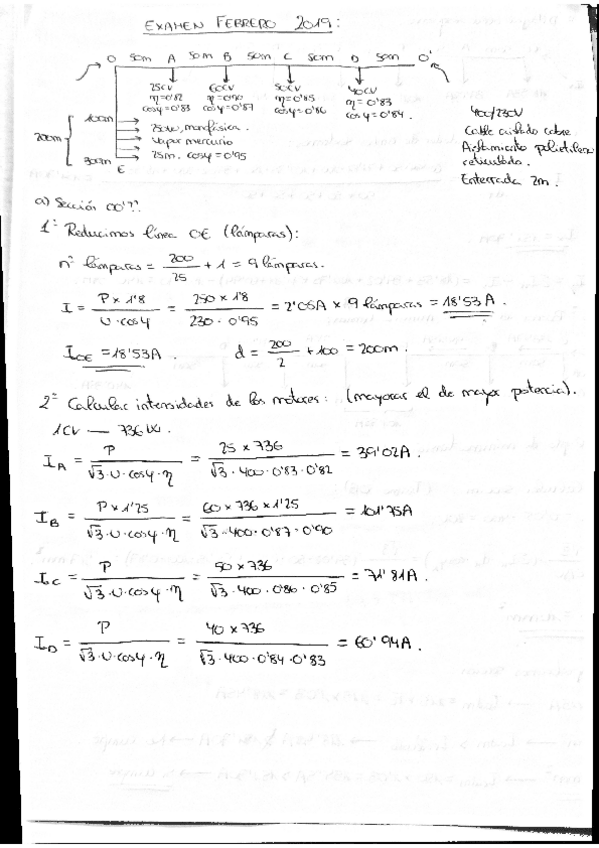 EXAMEN FEBRERO 2019:
O 50m A 50m B 50m C 50m D 50m O'
25CV 60CV 50CV 40CV
η=0'82 η=0'90 η=0'85 η=0'83
cosφ=0'83 cosφ=0'87 cosφ=0'86 cosφ=0'84.
400/230V
Cable aislado cobre
Aislamiento polietileno
reticulado.
Enterrada 2m.
100m
200m
300m
E
250W, monofásica.
vapor mercurio
25m. cosφ=0'95
a) Sección OO'??
1º Reducimos línea OE (lámparas):
nº lámparas = 200/25 + 1 = 9 lámparas.
I = P × 1'8 / U·cosφ = 250 × 1'8 / 230·0'95 = 2'05A × 9 lámparas = 18'53A.
I_OE = 18'53A. d = 200/2 + 100 = 200m.
2º Calcular intensidades de los motores: (mayorar el de mayor potencia).
1CV — 736W.
I_A = P / √3·U·cosφ·η = 25 × 736 / √3·400·0'83·0'82 = 39'02A.
I_B = P × 1'25 / √3·U·cosφ·η = 60 × 736 × 1'25 / √3·400·0'87·0'90 = 101'75A
I_C = P / √3·U·cosφ·η = 50 × 736 / √3·400·0'86·0'85 = 71'81A.
I_D = P / √3·U·cosφ·η = 40 × 736 / √3·400·0'84·0'83 = 60'94A.